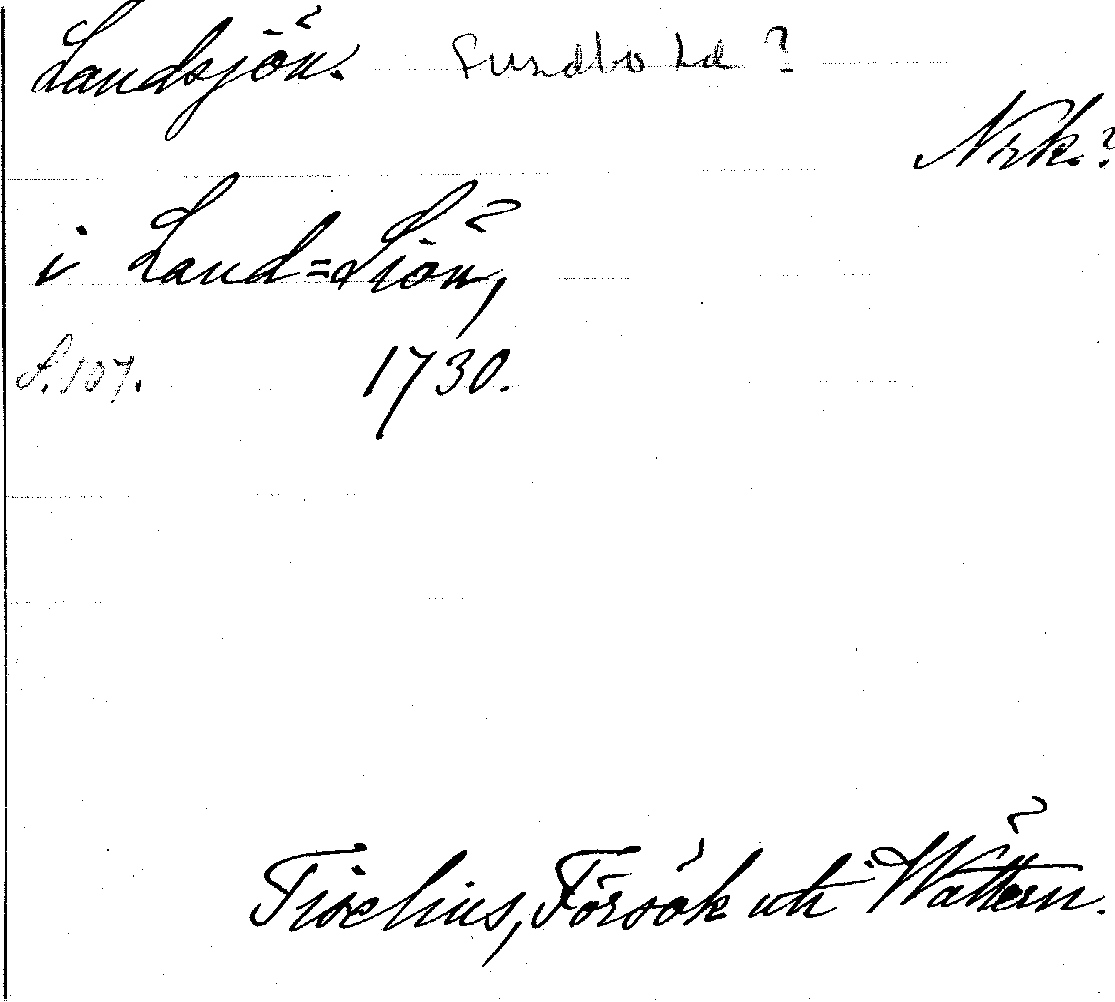 Landsjön. Sundbo hd ?
Nrk.?
i Land=Siön,
s. 107. 1730.
Tiselius, Försök uti Wättern.